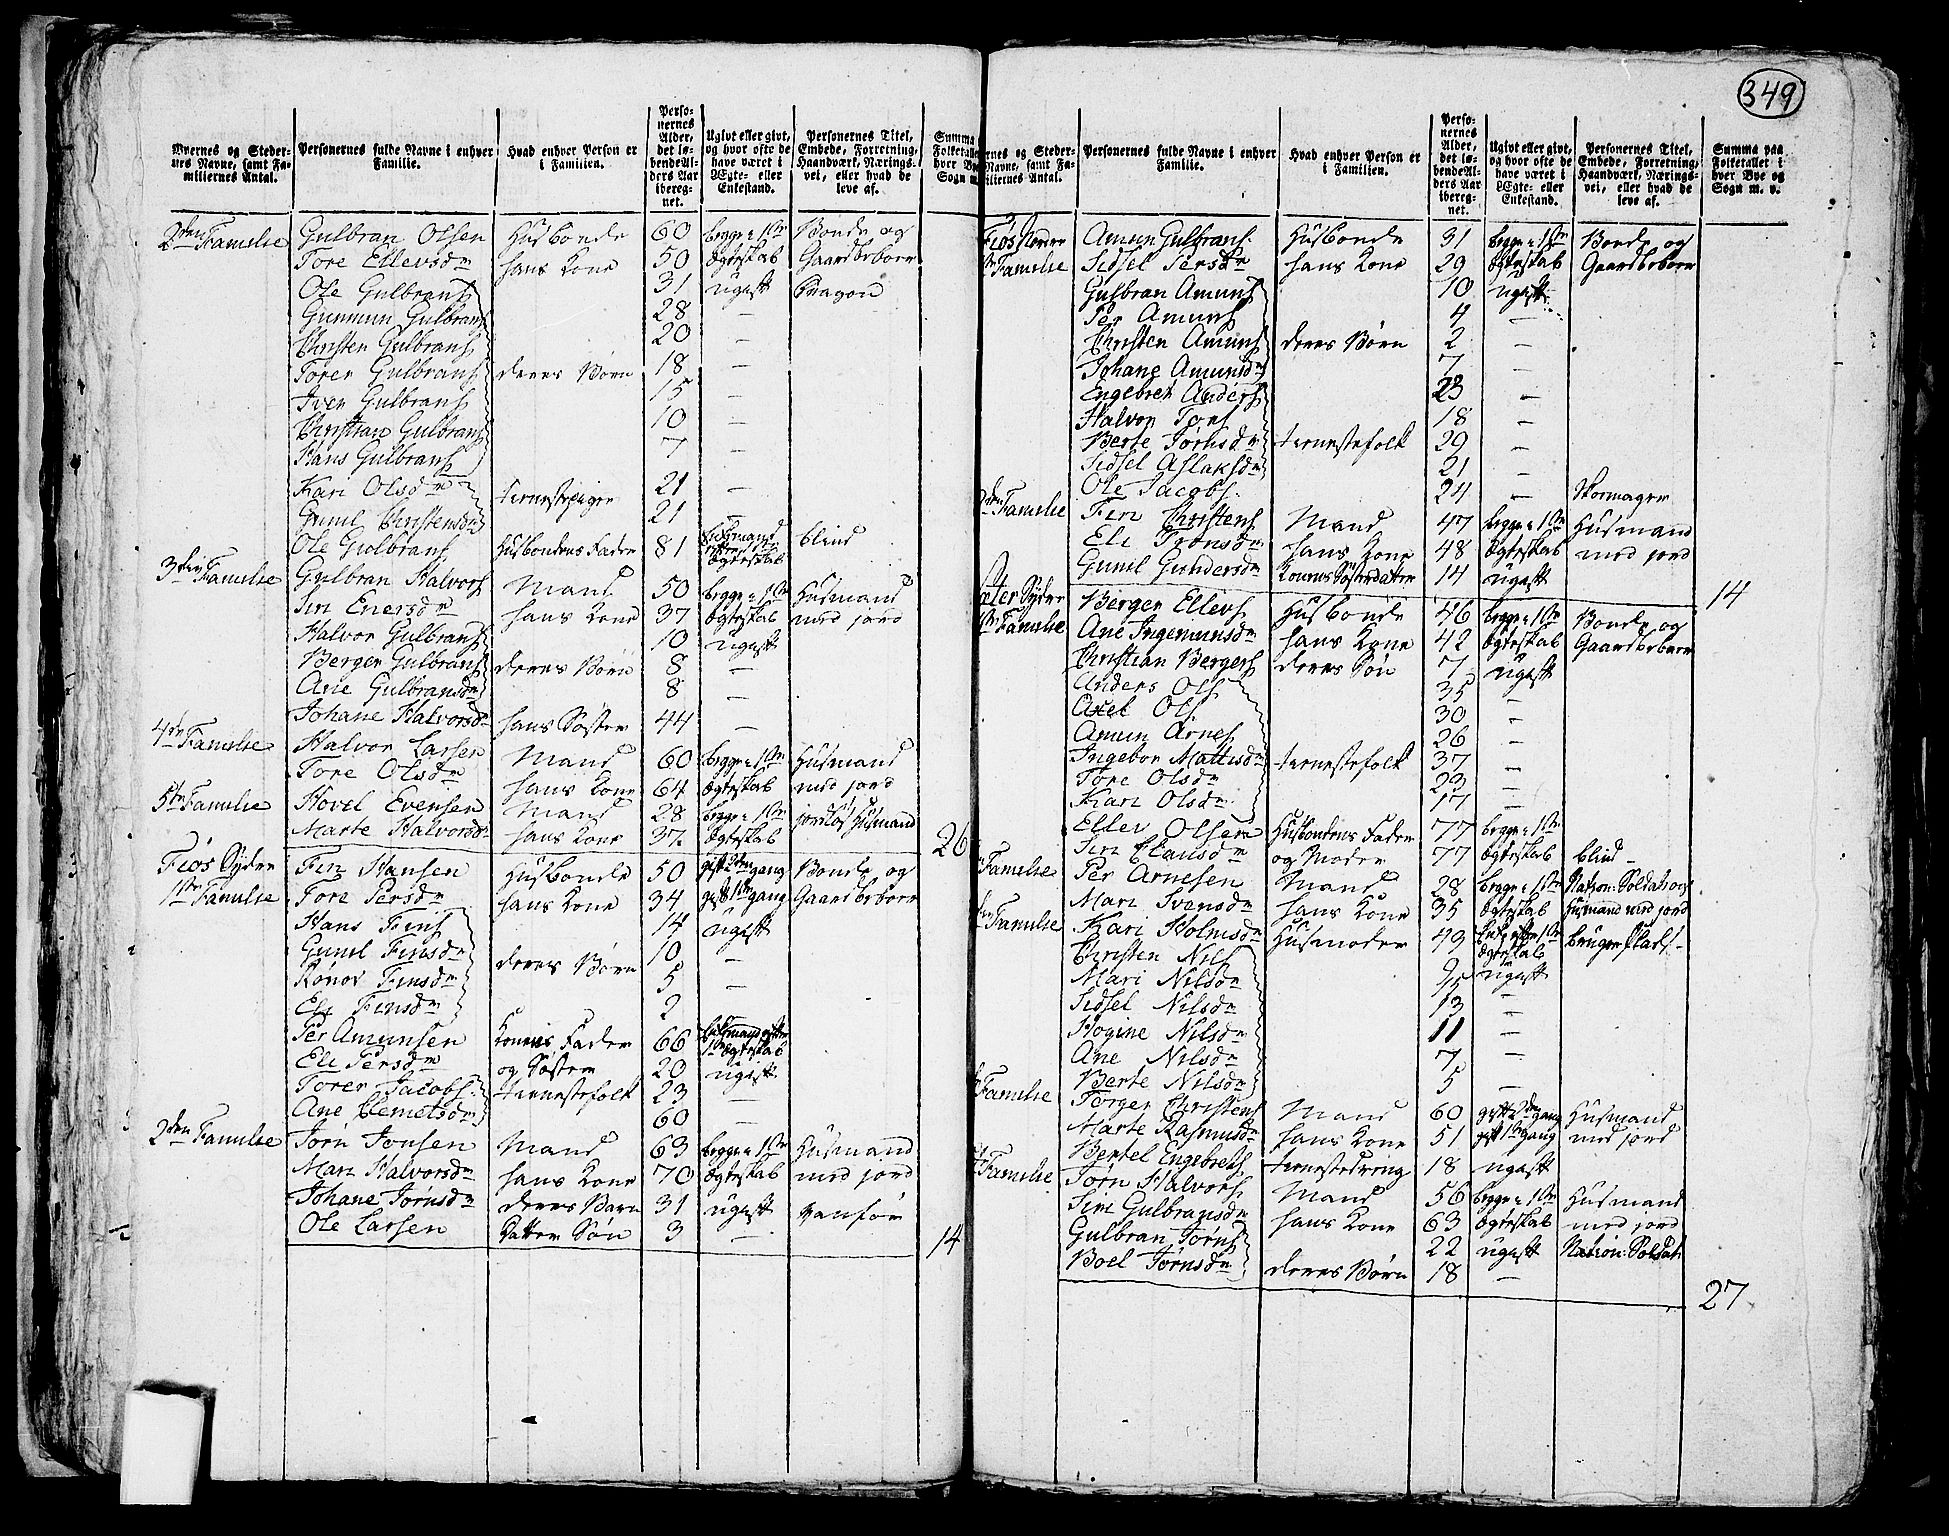 349
Byernes og Steder-
nes Navne, samt Fa-
miliernes Antal.
Personernes fulde Navne i enhver
Familie.
Hvad enhver Person er
i Familien.
Perso-
nernes
Alder,
det lø-
bende Al-
ders Aar
ibereg-
net.
Ugivt eller givt,
og hvor ofte de
have været i
Ægte- eller
Enkestand.
Personernes Titel,
Embede, Forretning,
Haandværk, Nærings-
vei, eller hvad de
leve af.
Summa
Folketallet
hver Bye
Sogn m.
2den Familie Gulbran Olsen Husbonde 60 begge i 1ste Bonde og
Tore Ellevsdr hans Kone 50 Ægteskab Gaardbeboer
Ole Gulbrans 31 ugift Dragon
Gunmun Gulbrans 28 —
Christen Gulbrans 20 —
Torer Gulbrans deres Børn 18 —
Iver Gulbrans 15 —
Christian Gulbrans 10 —
Hans Gulbrans 7 —
Kari Olsdr tienestepiger 21 —
Gunil Christensdr 21 —
Ole Gulbrans Husbondens Fader 81 Enkemand efter 1ste Ægteskab blind
3die Familie Gulbran Halvors Mand 50 begge i 1ste Husmand
Siri Enersdr hans Kone 37 Ægteskab med jord
Halvor Gulbrans 10 ugift
Berger Gulbrans deres Børn 8 —
Ane Gulbransdr 8 —
Johane Halvorsdr hans Søster 44 —
4de Familie Halvor Larsen Mand 60 begge i 1ste Husmand
Tore Olsdr hans Kone 64 Ægteskab med jord
5te Familie Hovel Evensen Mand 28 begge i 1ste jordløs Husmand
Marte Halvorsdr hans Kone 37 Ægteskab
26
Fiøs Sydre Fin Hansen Husbonde 50 gift 2den gang Bonde og
1ste Familie Tore Persdr hans Kone 34 gift 1ste gang Gaardbeboer
Hans Fins 14 ugift
Gunil Finsdr deres Børn 10 —
Rønov Finsdr 5 —
Eli Finsdr 2
Per Amunsen Konens Fader 66 Enkemand efter 1ste Ægteskab
Eli Persdr og Søster 20 ugift
Torer Jacobs. tienestefolk 23 —
Ane Clemetsdr 60 —
2den Familie Jørn Jonsen Mand 63 begge i 1ste Husmand
Mari Halvorsdr hans Kone 70 Ægteskab med jord
Johane Jørnsdr deres Barn 31 ugift vanfør
Ole Larsen Datter Søn 3 —
14
ernes og Steder-
Navne, samt Fa-
iliernes Antal.
Personernes fulde Navne i enhver
Familie.
Hvad enhver Person er
i Familien.
Perso-
nernes
Alder,
det lø-
bende Al-
ders Aar
ibereg-
net.
Ugivt eller givt,
og hvor ofte de
have været i
Ægte- eller
Enkestand.
Personernes Titel,
Embede, Forretning,
Haandværk, Nærings-
vei, eller hvad de
leve af.
Summa paa
Folketallet i
hver Bye og
Sogn m. v.
Fiøs Nordre Amun Gulbrans. Husbonde 31 begge i 1ste Bonde og
Familie Sidsel Persdr hans Kone 29 Ægteskab Gaardbeboer
Gulbran Amuns 10 ugift
Per Amuns 4 —
Christen Amuns deres Børn 2 —
Johane Amunsdr 7 —
Engebret Anders 23 —
Halvor Jons 18 —
Berte Jørnsdr tienestefolk 29 —
Sidsel Aslaksdr 21
Ole Jacobs. 24 — Skomager
2den Familie Fin Christens Mand 47 begge i 1ste Husmand
Eli Tronsdr hans Kone 48 Ægteskab med jord
Gunil Gundersdr Konens Søsterdatter 14 ugift
14
Sydre Berger Ellevs Husbonde 46 begge i 1ste Bonde og
Familie Ane Ingemunsdr hans Kone 42 Ægteskab Gaardbeboer
Christian Bergers deres Søn 7 ugift
Anders Ols 35 —
Axel Ols 30 —
Amun Arnes 26 —
Ingebor Mattisdr tienestefolk 37 —
Tore Olsdr 23 —
Kari Olsdr 17 —
Ellev Olsen Husbondens Fader 77 begge i 1ste
Siri Clausdr og Moder 77 Ægteskab blind
Familie Per Arnesen Mand 28 begge i 1ste Nation: Soldat
Mari Svensdr hans Kone 35 Ægteskab Husmand med jord
Familie Kari Holmsdr Husmoder 43 Enke efter 1ste Ægteskab bruger Plads
Christen Nils ugift
Mari Nilsdr 15 —
Sidsel Nilsdr 13 —
Hogine Nilsdr 11 —
Ane Nilsdr 7 —
Berte Nilsdr 5 —
Familie Torger Christens Mand 60 gift 2den gang Husmand
Marte Rasmusdr hans Kone 51 gift 1ste gang med jord
Bertel Engebrets tienestedreng 18 ugift
Familie Jørn Halvors Mand 56 begge i 1ste Husmand
Siri Gulbransdr hans Kone 63 Ægteskab med jord
Gulbran Jørns 22 ugift Nation: Soldat
Boel Jørnsdr deres Børn 18 —
27